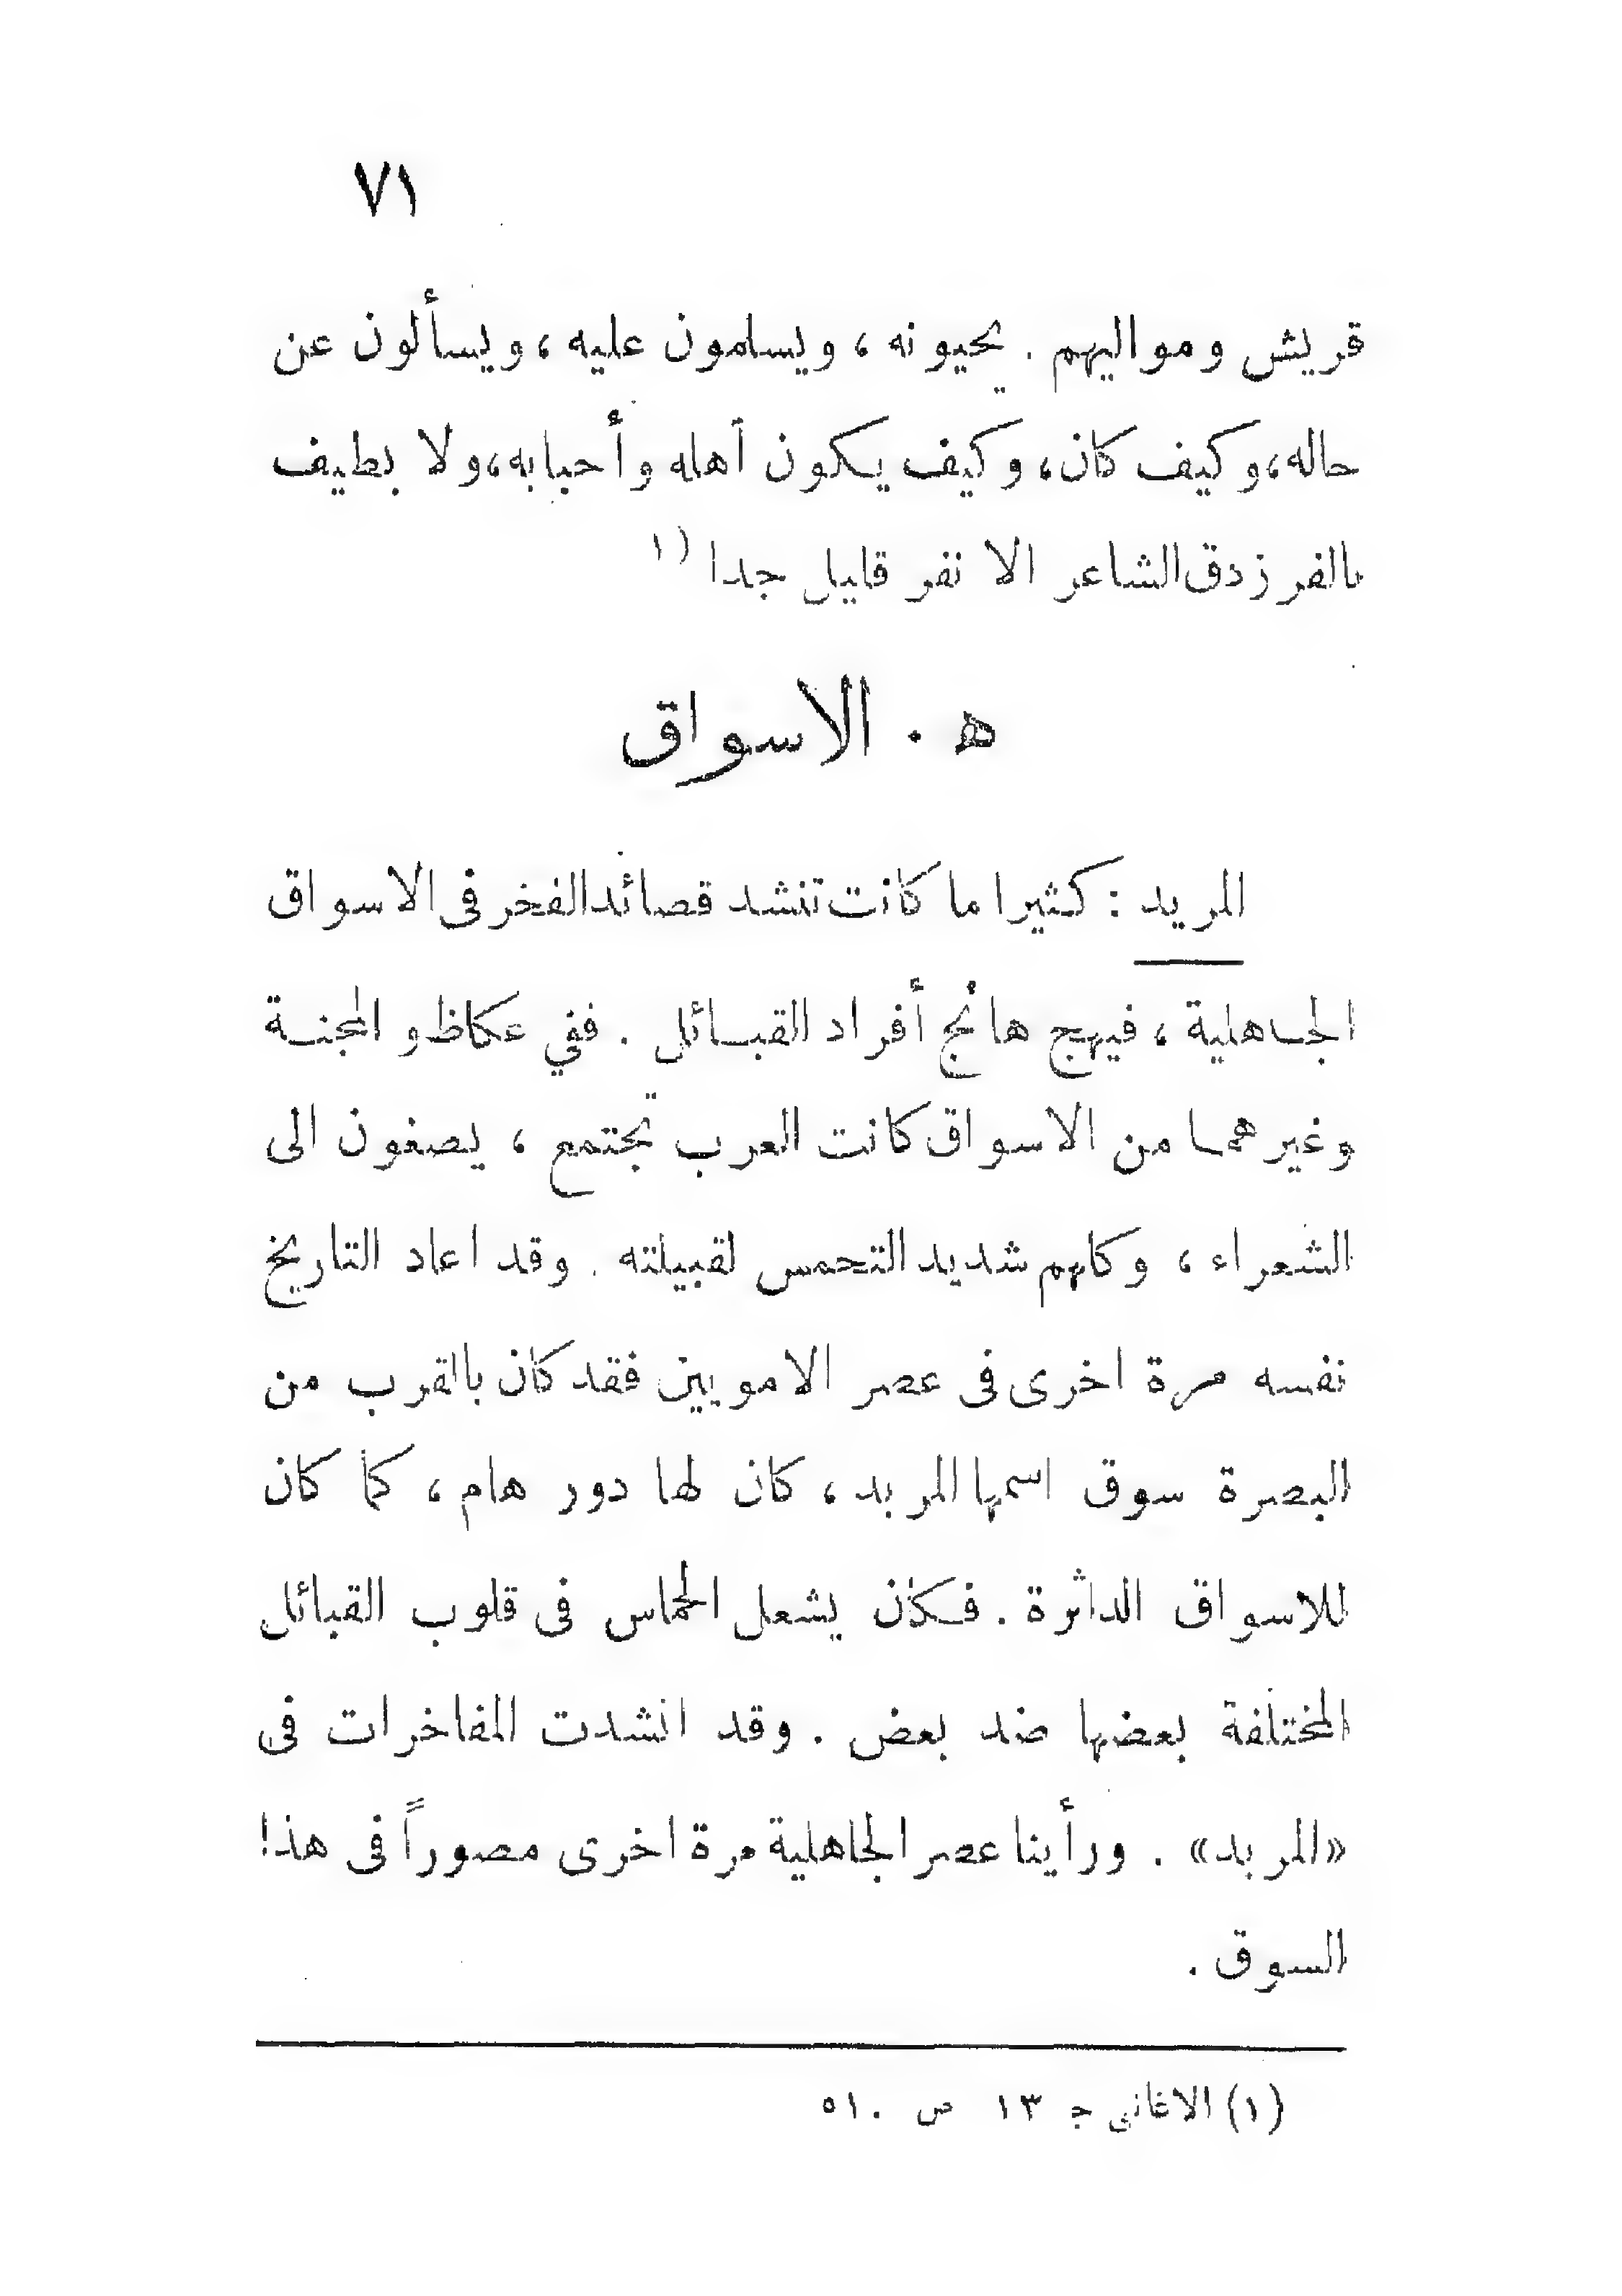 ٧١
قريش ومواليهم . يحيونه ، ويسلمون عليه ، ويسألون عن
حاله، وكيف كان، وكيف يكون أهله وأحبابه، ولا بطيف
بالفرزدق الشاعر الا نفر قليل جدا (١
ه . الاسواق
المربد : كثيرا ما كانت تنشد قصائد الفخر فى الاسواق
الجاهلية ، فيهج هائج أفراد القبائل . ففي عكاظ و المجنة
وغيرهما من الاسواق كانت العرب تجتمع ، يصغون الى
الشعراء ، وكلهم شديد التحمس لقبيلته . وقد اعاد التاريخ
نفسه مرة اخرى فى عصر الامويين فقد كان بالقرب من
البصرة سوق اسمها المربد ، كان لها دور هام ، كما كان
للاسواق الداثرة . فكان يشعل الحماس فى قلوب القبائل
المختلفة بعضها ضد بعض . وقد انشدت المفاخرات فى
«المربد» . ورأينا عصر الجاهلية مرة اخرى مصوراً فى هذا
السوق .
(١) الاغانى ج ١٣ ص ٥١٠